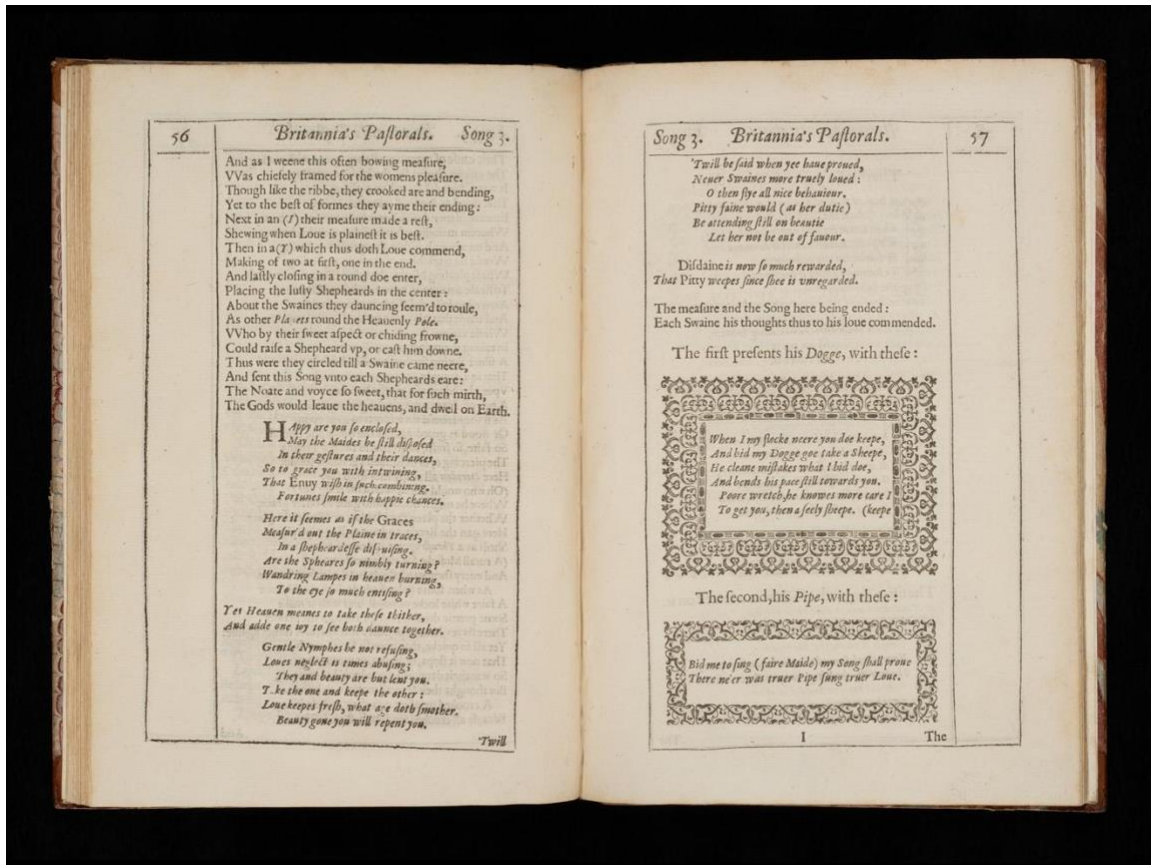 56 Britannia's Paſtorals. Song 3.
And as I weene this often bowing meaſure,
VVas chiefely framed for the womens pleaſure.
Though like the ribbe, they crooked are and bending,
Yet to the beſt of formes they ayme their ending:
Next in an (I) their meaſure made a reſt,
Shewing when Loue is plaineſt it is beſt.
Then in a (Y) which thus doth Loue commend,
Making of two at firſt, one in the end.
And laſtly cloſing in a round doe enter,
Placing the luſty Shepheards in the center:
About the Swaines they dauncing ſeem'd to roule,
As other Planets round the Heauenly Pole.
VVho by their ſweet aſpect or chiding frowne,
Could raiſe a Shepheard vp, or caſt him downe.
Thus were they circled till a Swaine came neere,
And ſent this Song vnto each Shepheards eare:
The Noate and voyce ſo ſweet, that for ſuch mirth,
The Gods would leaue the heauens, and dwell on Earth.
HAppy are you ſo encloſed,
May the Maides be ſtill diſpoſed
In their geſtures and their dances,
So to grace you with intwining,
That Enuy wiſh in ſuch combining,
Fortunes ſmile with happie chances.
Here it ſeemes as if the Graces
Meaſur'd out the Plaine in traces,
In a ſhepheardeſſe diſguiſing.
Are the Spheares ſo nimbly turning?
Wandring Lampes in heauen burning,
To the eye ſo much entiſing?
Yes Heauen meanes to take theſe thither,
And adde one ioy to ſee both daunce together.
Gentle Nymphes be not refuſing,
Loues neglect is times abuſing;
They and beauty are but lent you.
Take the one and keepe the other:
Loue keepes freſh, what age doth ſmother.
Beauty gone you will repent you.
'Twill
Song 3. Britannia's Paſtorals. 57
'Twill be ſaid when yee haue proued,
Neuer Swaines more truely loued:
O then flye all nice behauiour.
Pitty faine would (as her dutie)
Be attending ſtill on beautie
Let her not be out of fauour.
Diſdaine is now ſo much rewarded,
That Pitty weepes ſince ſhee is vnregarded.
The meaſure and the Song here being ended:
Each Swaine his thoughts thus to his loue commended.
The firſt preſents his Dogge, with theſe:
When I my flocke neere you doe keepe,
And bid my Dogge goe take a Sheepe,
He cleane miſtakes what I bid doe,
And bends his pace ſtill towards you.
Poore wretch, he knowes more care I
To get you, then a ſeely ſheepe. (keepe
The ſecond, his Pipe, with theſe:
Bid me to ſing (faire Maide) my Song ſhall proue
There ne'er was truer Pipe ſung truer Loue.
I The